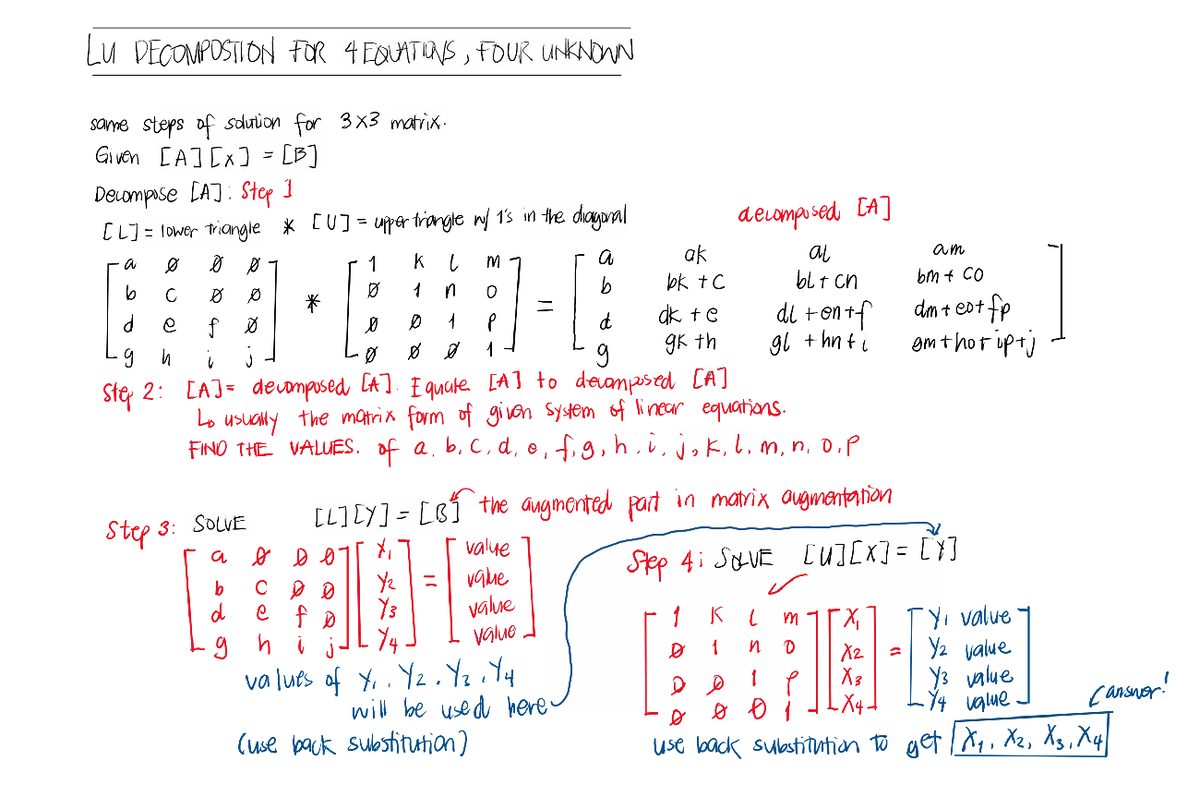 LU DECOMPOSTION FOR 4 EQUATIONS, FOUR UNKNOWN
same steps of solution for 3x3 matrix.
Given [A][x] = [B]
Decompose [A]: Step 1
[L] = lower triangle * [U] = upper triangle w/ 1's in the diagonal
decomposed [A]
a 0 0 0 1 k l m a ak al am
b c 0 0 * 0 1 n o = b bk + c bl + cn bm + co
d e f 0 0 0 1 p d dk + e dl + en + f dm + eo + fp
g h i j 0 0 0 1 g gk + h gl + hn + i gm + ho + ip + j
Step 2: [A] = decomposed [A]. Equate [A] to decomposed [A]
↳ usually the matrix form of given system of linear equations.
FIND THE VALUES. of a, b, c, d, e, f, g, h, i, j, k, l, m, n, o, p
Step 3: SOLVE [L][Y] = [B] the augmented part in matrix augmentation
a 0 0 0 Y1 value
b c 0 0 Y2 = value
d e f 0 Y3 value
g h i j Y4 value
values of Y1, Y2, Y3, Y4
will be used here
(use back substitution)
Step 4: SOLVE [U][X] = [Y]
1 k l m X1 Y1 value
0 1 n o X2 = Y2 value
0 0 1 p X3 Y3 value
0 0 0 1 X4 Y4 value
answer!
use back substitution to get X1, X2, X3, X4